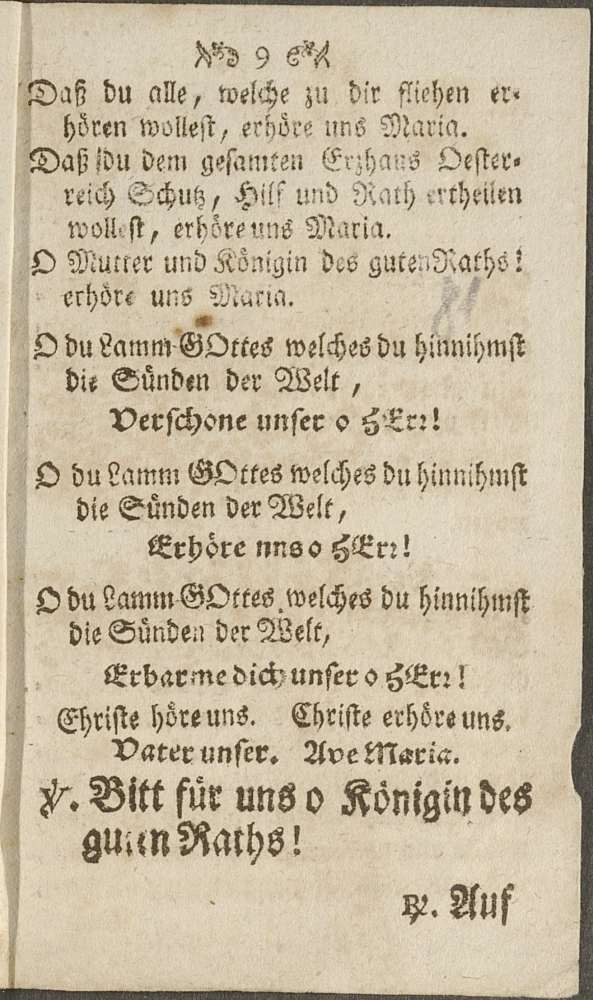 9
Daß du alle, welche zu dir fliehen er-
hören wollest, erhöre uns Maria.
Daß du dem gesamten Erzhaus Oester-
reich Schutz, Hilf und Rath ertheilen
wollest, erhöre uns Maria.
O Mutter und Königin des guten Raths!
erhöre uns Maria.
O du Lamm GOttes welches du hinnihmst
die Sünden der Welt,
Verschone unser o HErr!
O du Lamm GOttes welches du hinnihmst
die Sünden der Welt,
Erhöre nns o HErr!
O du Lamm GOttes welches du hinnihmst
die Sünden der Welt,
Erbarme dich unser o HErr!
Christe höre uns. Christe erhöre uns.
Vater unser. Ave Maria.
℣. Bitt für uns o Königin des
guten Raths!
℟. Auf